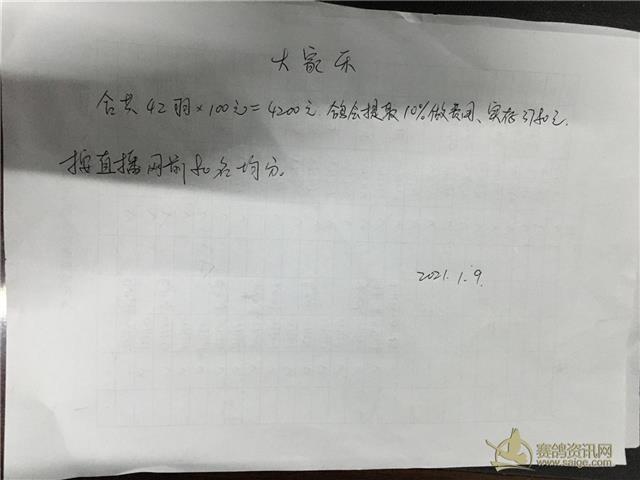 大家乐
合共42羽×100元=4200元.鸽会提取10%做费用、实存3780元.
按直播网前50名均分。
2021.1.9.
赛鸽资讯网
www.saige.com